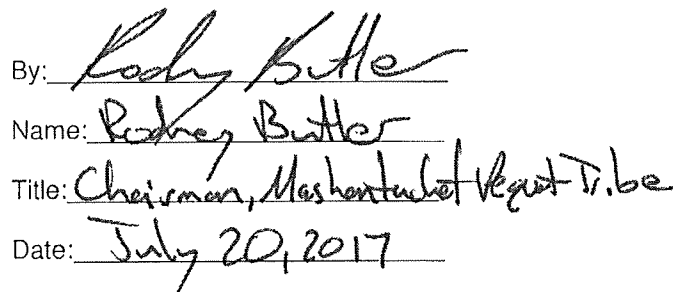 By: Rodney Butler
Name: Rodney Butler
Title: Chairman, Mashantucket Pequot Tribe
Date: July 20, 2017